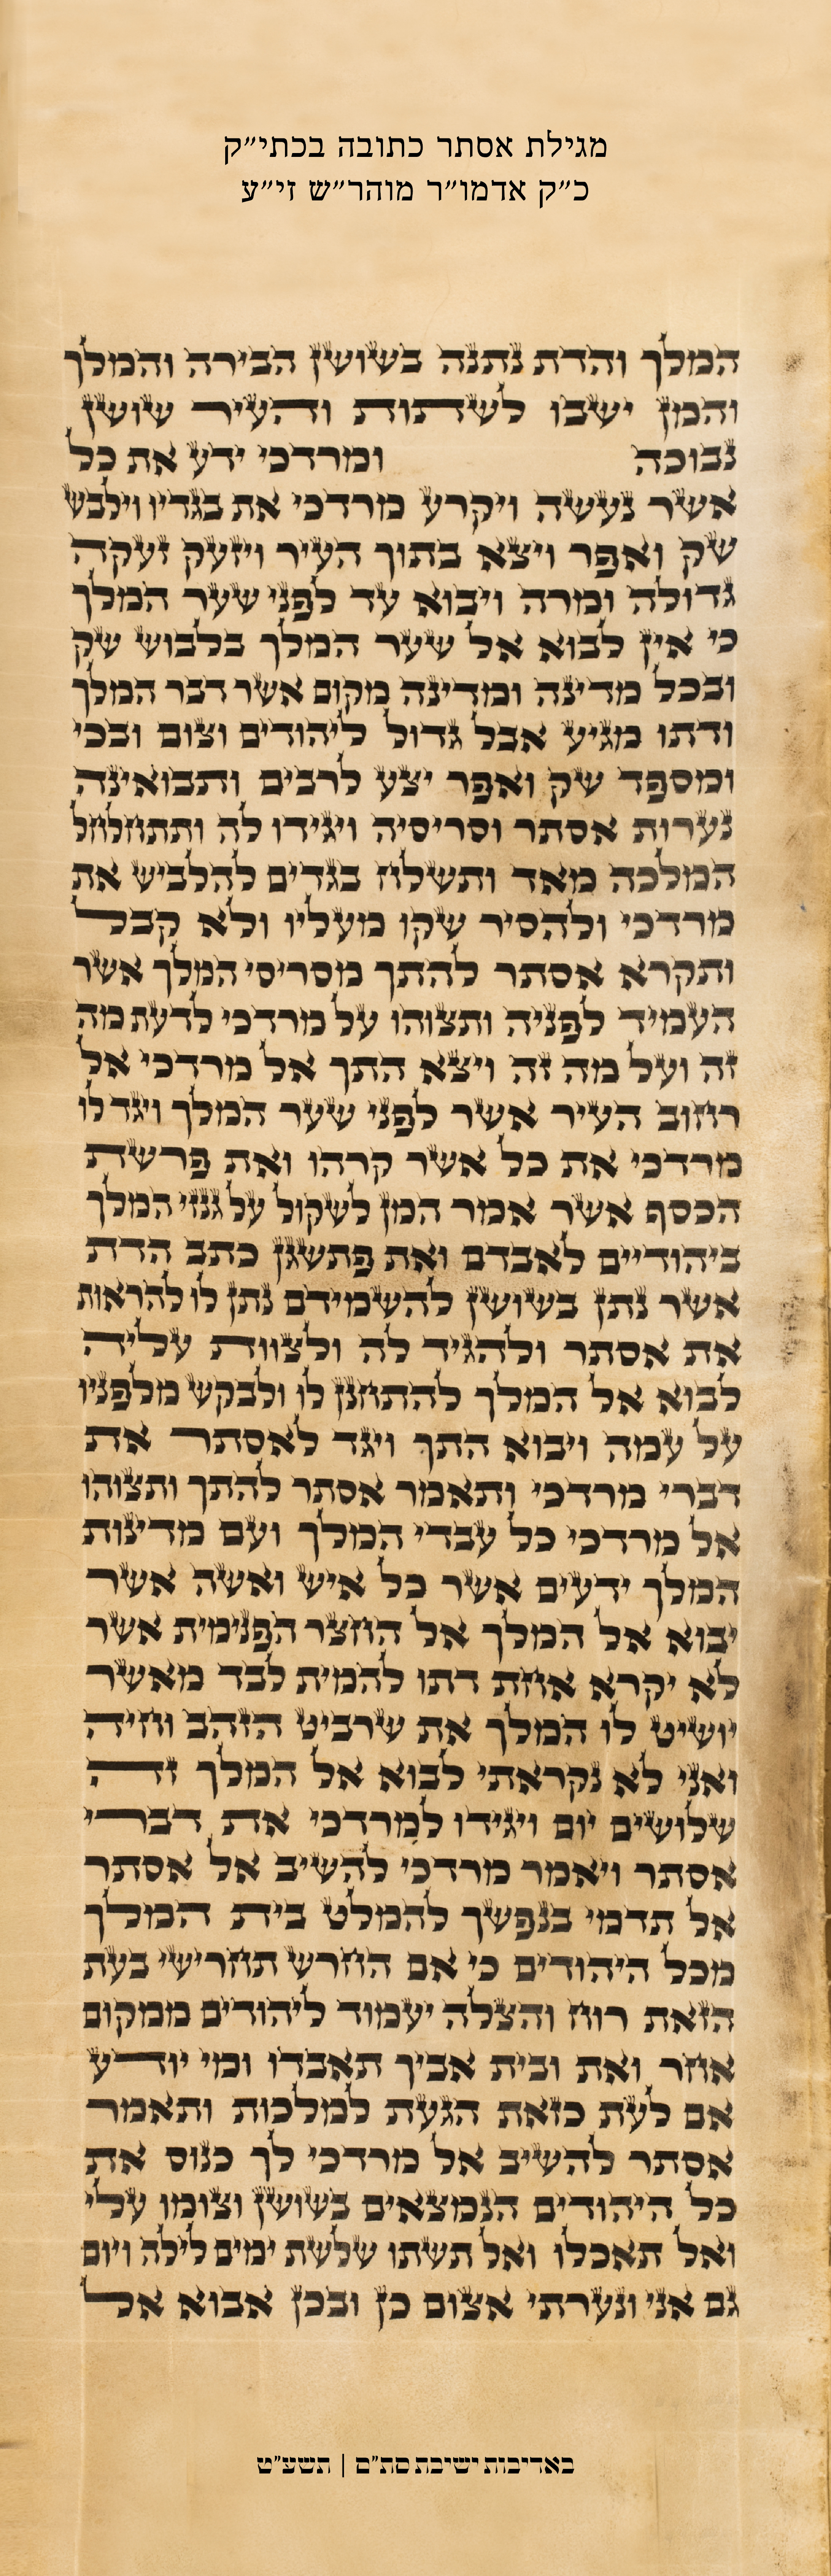 מגילת אסתר כתובה בכתי״ק
כ״ק אדמו״ר מוהר״ש זי״ע
המלך והדת נתנה בשושן הבירה והמלך
והמן ישבו לשתות והעיר שושן
נבוכה ומרדכי ידע את כל
אשר נעשה ויקרע מרדכי את בגדיו וילבש
שק ואפר ויצא בתוך העיר ויזעק זעקה
גדולה ומרה ויבוא עד לפני שער המלך
כי אין לבוא אל שער המלך בלבוש שק
ובכל מדינה ומדינה מקום אשר דבר המלך
ודתו מגיע אבל גדול ליהודים וצום ובכי
ומספד שק ואפר יצע לרבים ותבואינה
נערות אסתר וסריסיה ויגידו לה ותתחלחל
המלכה מאד ותשלח בגדים להלביש את
מרדכי ולהסיר שקו מעליו ולא קבל
ותקרא אסתר להתך מסריסי המלך אשר
העמיד לפניה ותצוהו על מרדכי לדעת מה
זה ועל מה זה ויצא התך אל מרדכי אל
רחוב העיר אשר לפני שער המלך ויגד לו
מרדכי את כל אשר קרהו ואת פרשת
הכסף אשר אמר המן לשקול על גנזי המלך
ביהודיים לאבדם ואת פתשגן כתב הדת
אשר נתן בשושן להשמידם נתן לו להראות
את אסתר ולהגיד לה ולצוות עליה
לבוא אל המלך להתחנן לו ולבקש מלפניו
על עמה ויבוא התך ויגד לאסתר את
דברי מרדכי ותאמר אסתר להתך ותצוהו
אל מרדכי כל עבדי המלך ועם מדינות
המלך ידעים אשר כל איש ואשה אשר
יבוא אל המלך אל החצר הפנימית אשר
לא יקרא אחת דתו להמית לבד מאשר
יושיט לו המלך את שרביט הזהב וחיה
ואני לא נקראתי לבוא אל המלך זה
שלושים יום ויגידו למרדכי את דברי
אסתר ויאמר מרדכי להשיב אל אסתר
אל תדמי בנפשך להמלט בית המלך
מכל היהודים כי אם החרש תחרישי בעת
הזאת רוח והצלה יעמוד ליהודים ממקום
אחר ואת ובית אביך תאבדו ומי יודע
אם לעת כזאת הגעת למלכות ותאמר
אסתר להשיב אל מרדכי לך כנוס את
כל היהודים הנמצאים בשושן וצומו עלי
ואל תאכלו ואל תשתו שלשת ימים לילה ויום
גם אני ונערתי אצום כן ובכן אבוא אל
באדיבות ישיבת סת״ם | תשע״ט